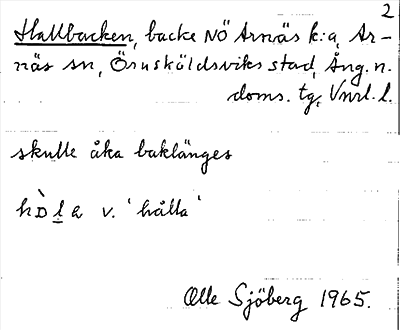 2
Hallbacken, backe NÖ Arnäs k:a, Ar-
näs sn, Örnsköldsviks stad, Ång. n.
doms. tg, Vnrl. l.
skulle åka baklänges
v. 'hålla'
Olle Sjöberg 1965.